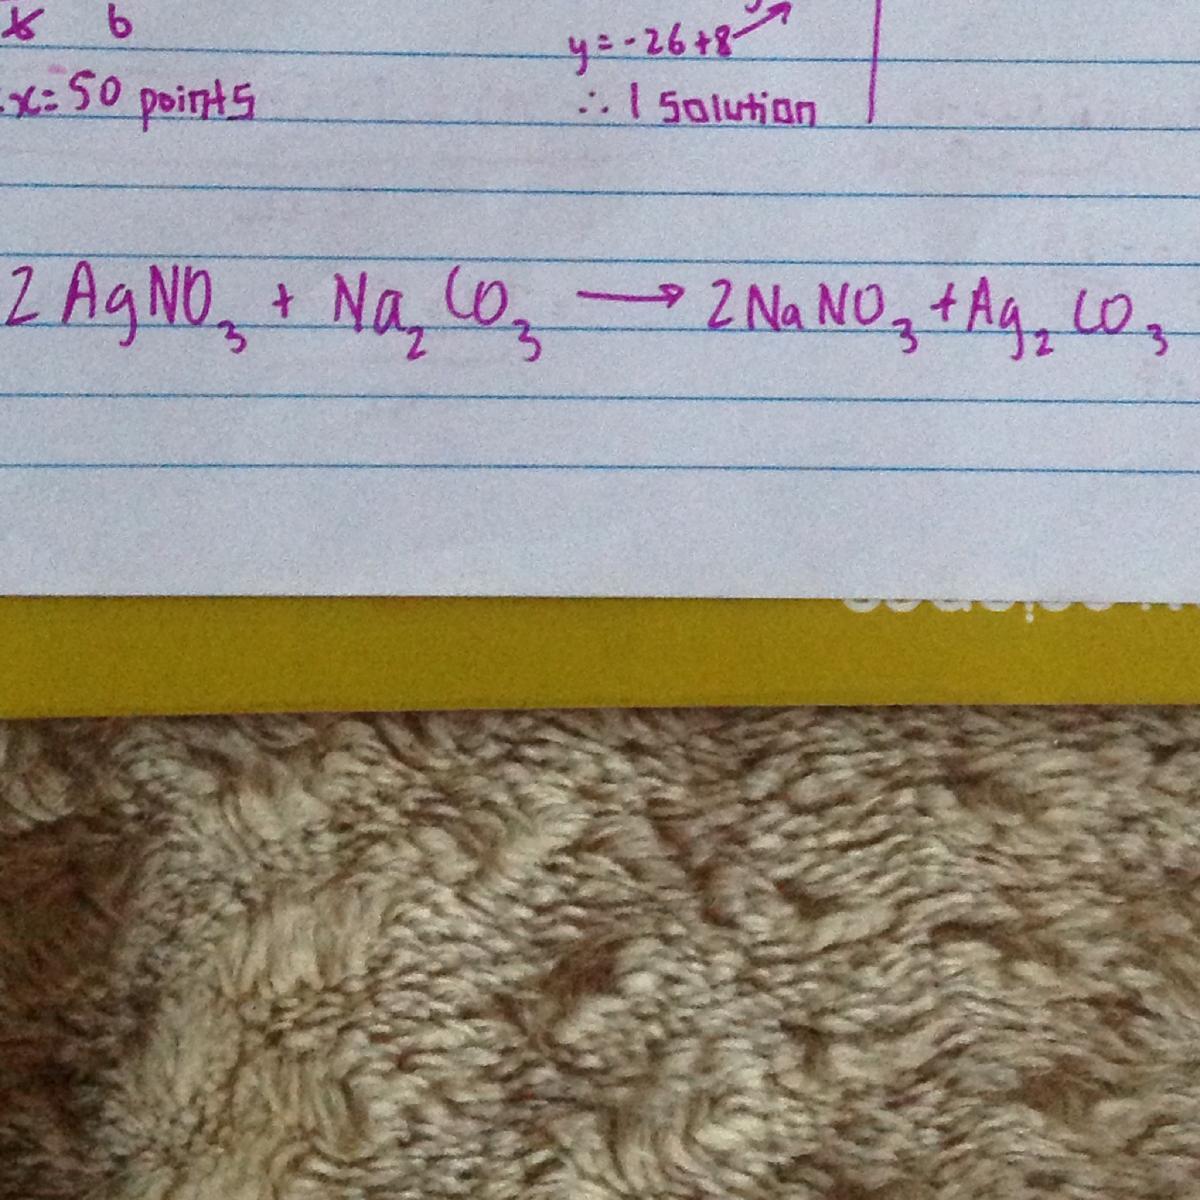 6
x=50 points
y=-26+8
∴ 1 Solution
2 AgNO₃ + Na₂CO₃ → 2NaNO₃ + Ag₂CO₃